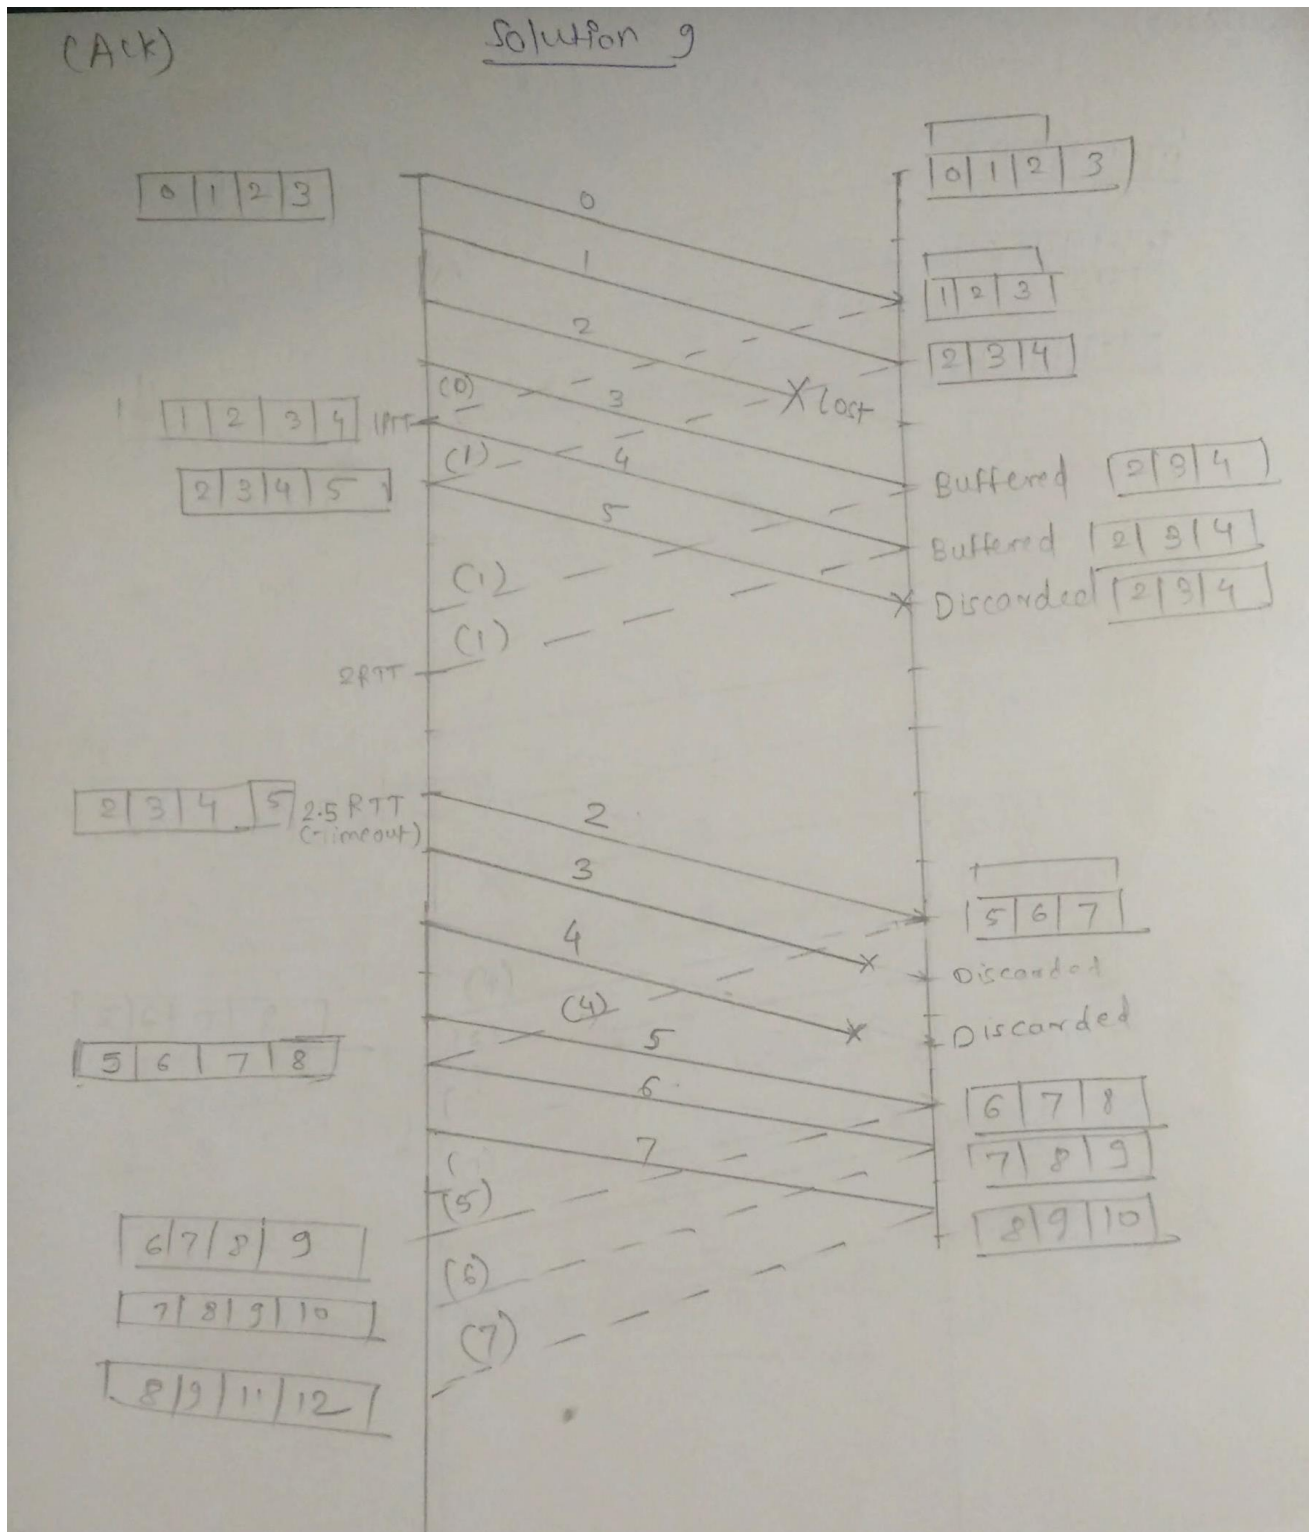 (Ack)
Solution 9
0 | 1 | 2 | 3
0
0 | 1 | 2 | 3
1
1 | 2 | 3
2
2 | 3 | 4
(0)
3
X Lost
1 | 2 | 3 | 4
1RTT
(1)
4
Buffered 2 | 3 | 4
2 | 3 | 4 | 5
5
Buffered 2 | 3 | 4
(1)
Discarded 2 | 3 | 4
(1)
2RTT
2 | 3 | 4 | 5
2.5 RTT
(Timeout)
2
3
5 | 6 | 7
4
Discarded
(4)
Discarded
5
5 | 6 | 7 | 8
6
6 | 7 | 8
7
7 | 8 | 9
(5)
8 | 9 | 10
6 | 7 | 8 | 9
(6)
7 | 8 | 9 | 10
(7)
8 | 9 | 11 | 12